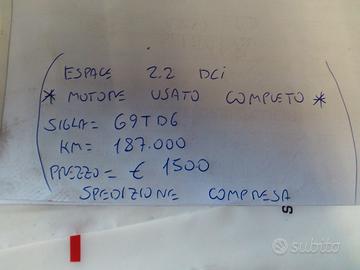 ESPACE 2.2 DCi
* MOTORE USATO COMPLETO *
SIGLA = G9TD6
KM = 187.000
PREZZO = € 1500
SPEDIZIONE COMPRESA
S
subito